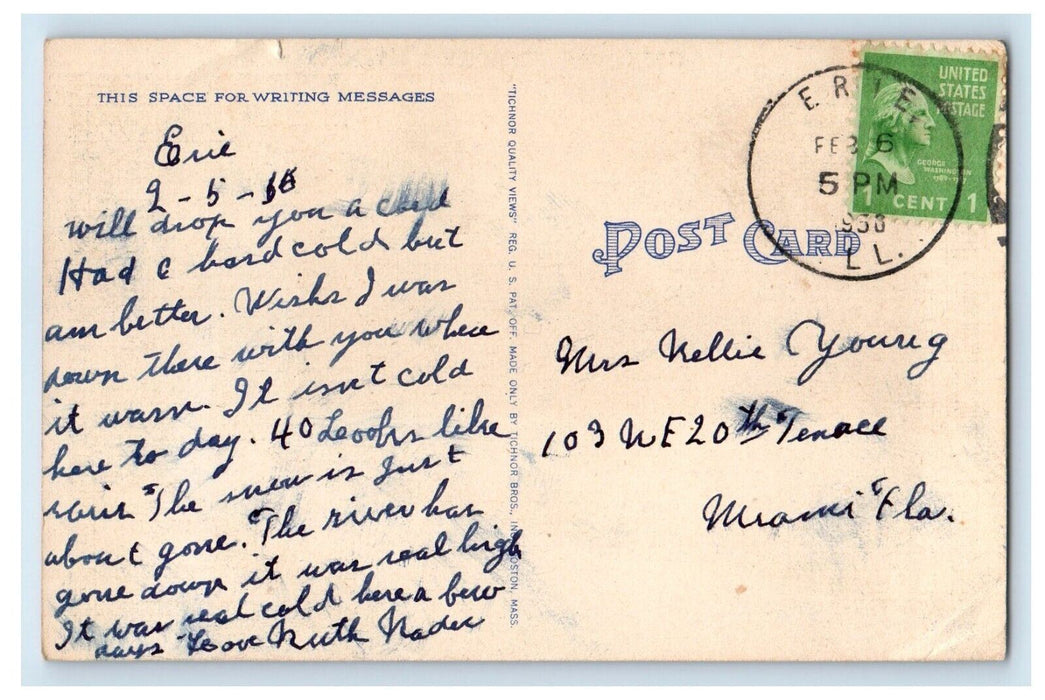 THIS SPACE FOR WRITING MESSAGES
Erie
2-5-
will drop you a
Had a hard cold but
am better. Wish I was
down there with you where
it warm. It isnt cold
here to day. 40 Looks like
rain The snow is just
about gone. The river has
gone down it was real high
It was real cold here a few
days Love Ruth Nader
"TICHNOR QUALITY VIEWS" REG. U. S. PAT. OFF. MADE ONLY BY TICHNOR BROS., INC., BOSTON, MASS.
POST CARD
ERIE
FEB 6
5 PM
ILL.
UNITED
STATES
POSTAGE
GEORGE
WASHINGTON
1 CENT 1
Mrs Nellie Young
103 NE 20th Terrace
Miami Fla.